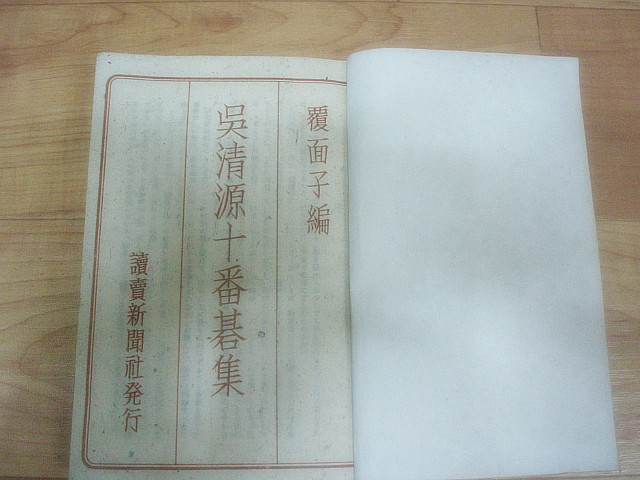 覆面子編
吳清源十番碁集
讀賣新聞社発行